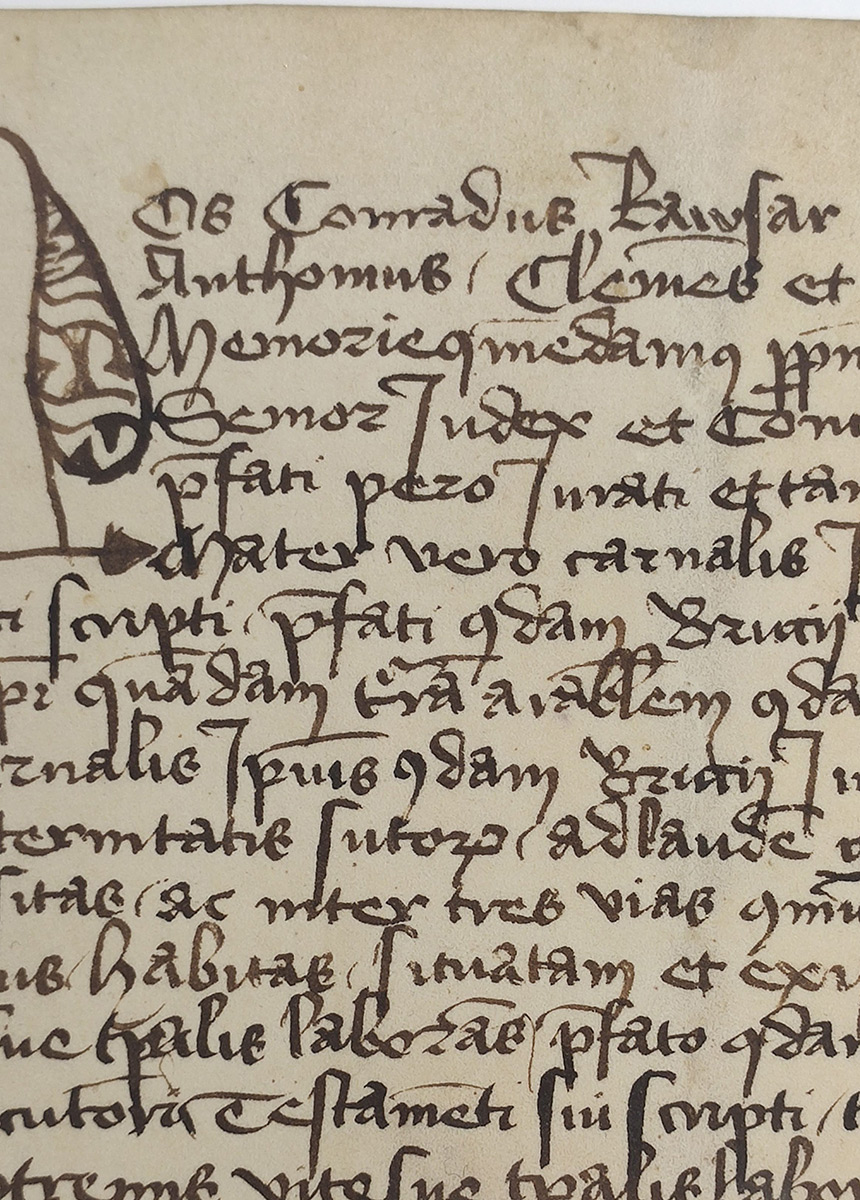 Nos Conradus Rawsar
Anthonius Clemēs et
Memorie q̄mēdamꝯ ꝑpm
Senior Judex et Con
p̄fati pero Jurati ettam
Mater vero carnalis
scripti p̄fati qdam Briccii
quādam trā arablem qda
rnalis Ipius ꝯdam Briccii Ju
ternitatis sutorꝝ ad laudē
sitas ac inter tres vias
us habitas situatam et
ue tp̄alis laborās p̄fato qdam
Testamēti sui scripti
vite sue tp̄alis labor